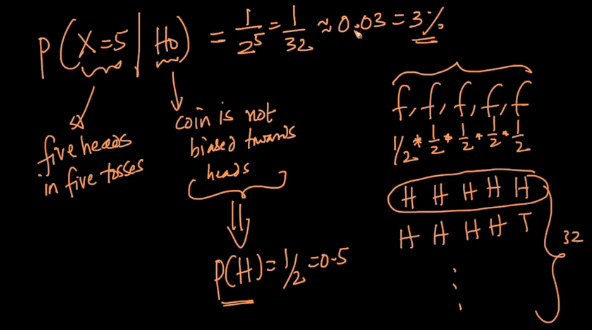 P(X=5|H0) = 1/2^5 = 1/32 ≈ 0.03 = 3%
five heads
in five tosses
coin is not
biased towards
heads
P(H) = 1/2 = 0.5
f, f, f, f, f
1/2 * 1/2 * 1/2 * 1/2 * 1/2
H H H H H
H H H H T
32
⋮